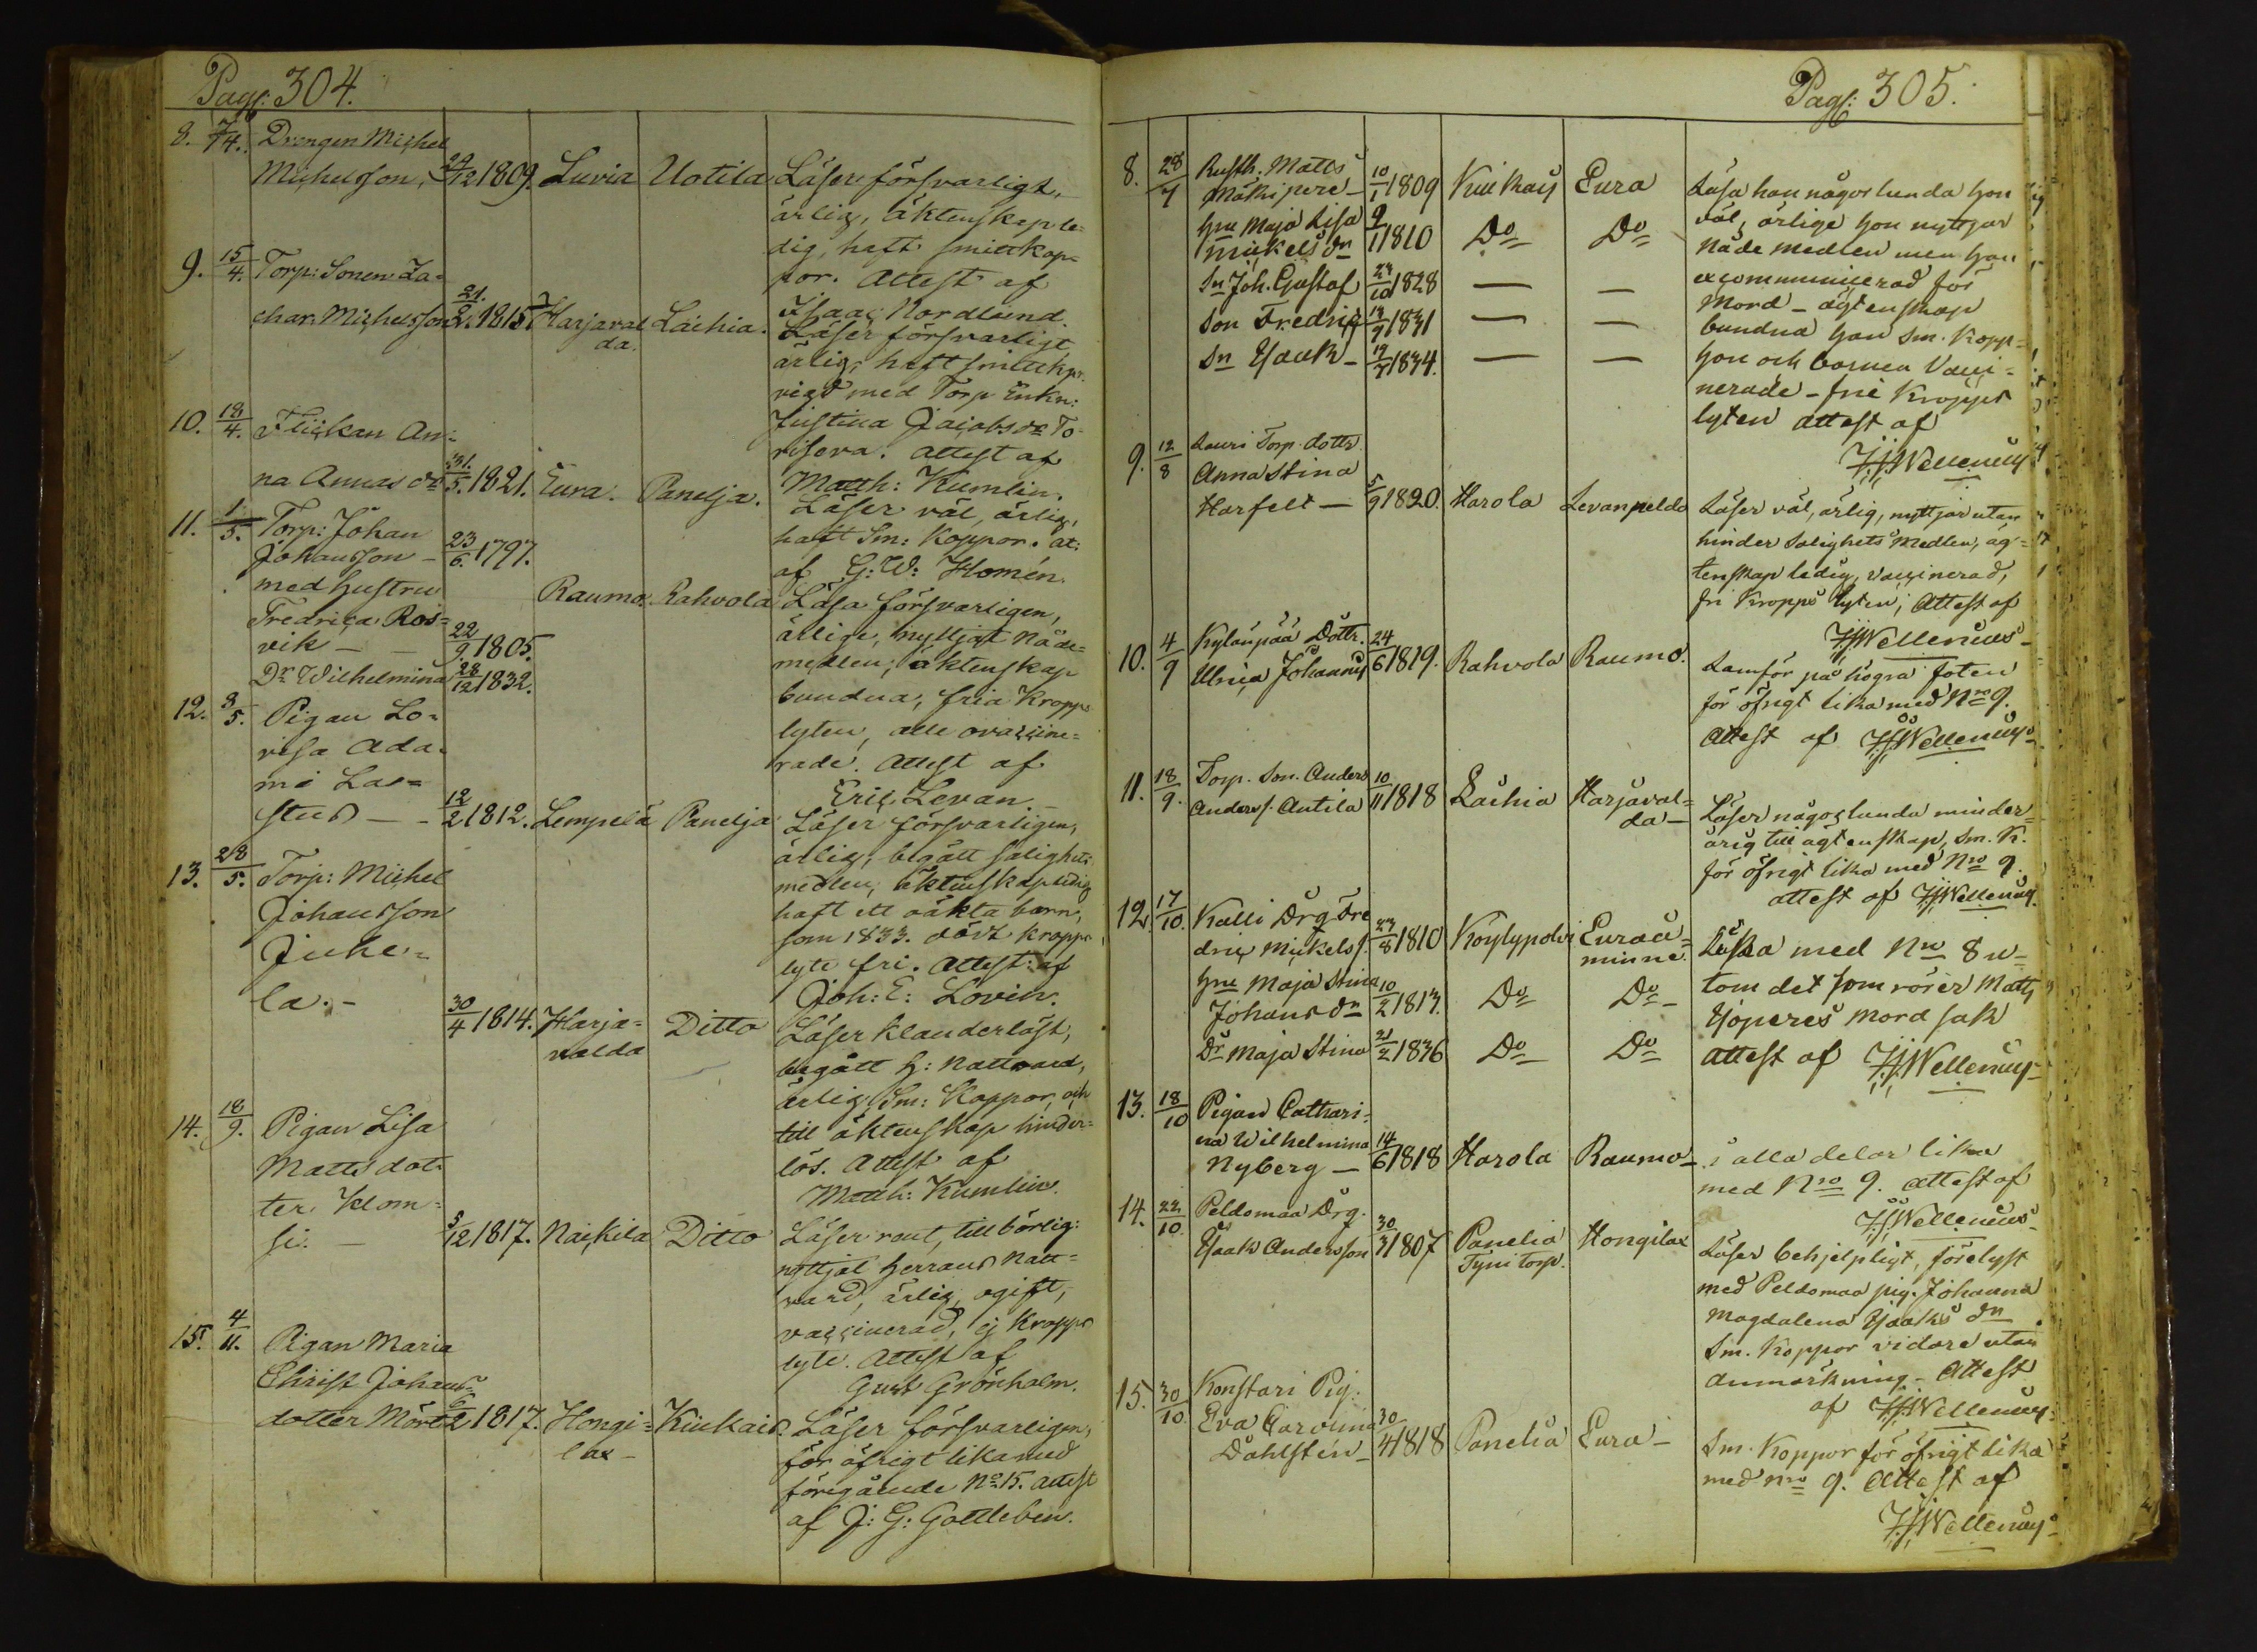 Pag: 304.
8. 7/4. Drengen Michel
Michelsson, 24/12 1809. Luvia Uotila Läser försvarligt,
ärlig, äktenskap le=
dig, haft smittkop=
por. Attest af
Isaac Nordlund.
9. 15/4. Torp: Sonen Za=
char. Michelsson 21/2. 1815. Harjaval
da. Laihia. Läser försvarligt
ärlig; haft smittkpr.
vigd med Torp Enkn:
Justina Jacobsdr To-
risova. attest af
Matth: Kumlin.
10. 18/4. Flickan An=
na Annasdr 31/5. 1821. Eura. Panelja.
Läser väl, ärlig,
haft Sm: Koppor. at:
af G: W: Homén.
11. 1/5. Torp: Johan
Johansson - 23/6. 1797.
med hustru Raumo. Rahvola Läsa försvarligen,
Fredrica Ros=
vik - - 22/9 1805.
Dr Wilhelmina 28/12 1832.
ärlige, nyttjat Nåde-
medlen; äktenskap
bundna, fria Kropps
lyten, alle ovaccine=
rade. Attest af
Eric Levan. -
12. 3/5. Pigan Lo=
visa Ada=
mi Las=
stud - - 12/2 1812. Lempelä Panelja Läser försvarligen,
ärlig; begått salighets
medlen; äktenskapledig
haft ett oäkta barn,
som 1833. dödt kropps
lyte fri. Attest: af
Joh: E: Lovin.
13. 28/5. Torp: Michel
Johansson
Juke=
la. - 30/4 1814. Harja=
valda Ditto Läser klanderlöst,
begått H: Nattvard,
ärlig, Sm: Koppor, och
till äktenskap hinder=
lös. Attest af
Matth: Kumlin.
14. 18/9. Pigan Lisa
Matts dot:
ter Klom=
si. - 5/12 1817. Naikila Ditto Läser rent, tillbörlig:
nyttjat Herrans Natt=
vard, ärlig, ogift,
vaccinerad, ej Kropps
lyte. Attest af
Gust Grönholm.
15. 4/11. Pigan Maria
Christ Johans=
dotter Mört 6/2 1817. Hongi=
lax - Kiukais. Läser försvarligen,
för öfrigt lika med
föregående No 15. attest
af J: G: Gottleben.
Pag: 305.
8. 28/7 Rusth. Matts
Mäkipere - 10/1 1809 Kiukais Eura Läsa han någorlunda hon
hru Maja Lisa
Mickels dr 9/1 1810 Do Do väl, ärlige hon nyttjar
nåde medlen men han
Sn Joh. Gustaf 24/10 1828 — — excommunicerad för
Mord - ägtenskap
Son Fredrik 13/9 1831 — — bundna han Sm. Kopp=
Sn Isaak - 19/3 1834. — — hon och barnen Vacci=
nerade - frie Kropps
lyten attest af
J:J:Wellenius
9. 12/8 Lauri Torp. dottr
Anna Stina
Harfelt - 5/9 1820. Harola Levanpeldo Läser väl, ärlig, nyttjar utan
hinder Salighets Medlen, äg=
tenskap ledig, vaccinerad,
fri Kropps lyten; Attest af
J:J:Wellenius
10. 4/9 Kyläupää Dottr.
Ulrica Johannis 24/6 1819. Rahvola Raumo. Lam för på högra foten
för öfrigt lika med Nro 9.
Attest af J:J:Wellenius
11. 18/9. Torp. Son. Anders
Anderss. Antila 10/11 1818 Laihia Harjaval=
da - Läser någorlunda minder=
årig till ägtenskap, Sm. K.
för öfrigt lika med Nro 9.
attest af J:J:Wellenius
12. 17/10. Kalli Drg Fre
dric Mickelss. 27/8 1810 Köylypolvi Euraå=
minne Lika med Nro 8 u=
hru Maja Stina
Johansdr 10/2 1813. Do Do tom det som rörer Matts
Isoperes mord sak
Dr Maja Stina 21/2 1836 Do Do attest af J:J:Wellenius
13. 18/10 Pigan Cathari=
na Wilhelmina
Nyberg - 14/6 1818 Harola Raumo - i alla delar lika
med Nro 9. attest af
J:J:Wellenius
14. 22/10. Peldomaa Drg.
Isaak Andersson 30/3 1807 Panelia
Tyni torp. Hongilax Läser behjelpligt, förelyst
med Peldomaa pig. Johanna
Magdalena Isaaks dr
Sm. Koppor vidare utan
anmärkning - Attest
af J:J:Wellenius
15. 30/10. Konstari Pig:
Eva Carolina
Dahlstén - 30/4 1818 Panelia Eura - Sm. Koppor för öfrigt lika
med nro 9. Attest af
J:J:Wellenius